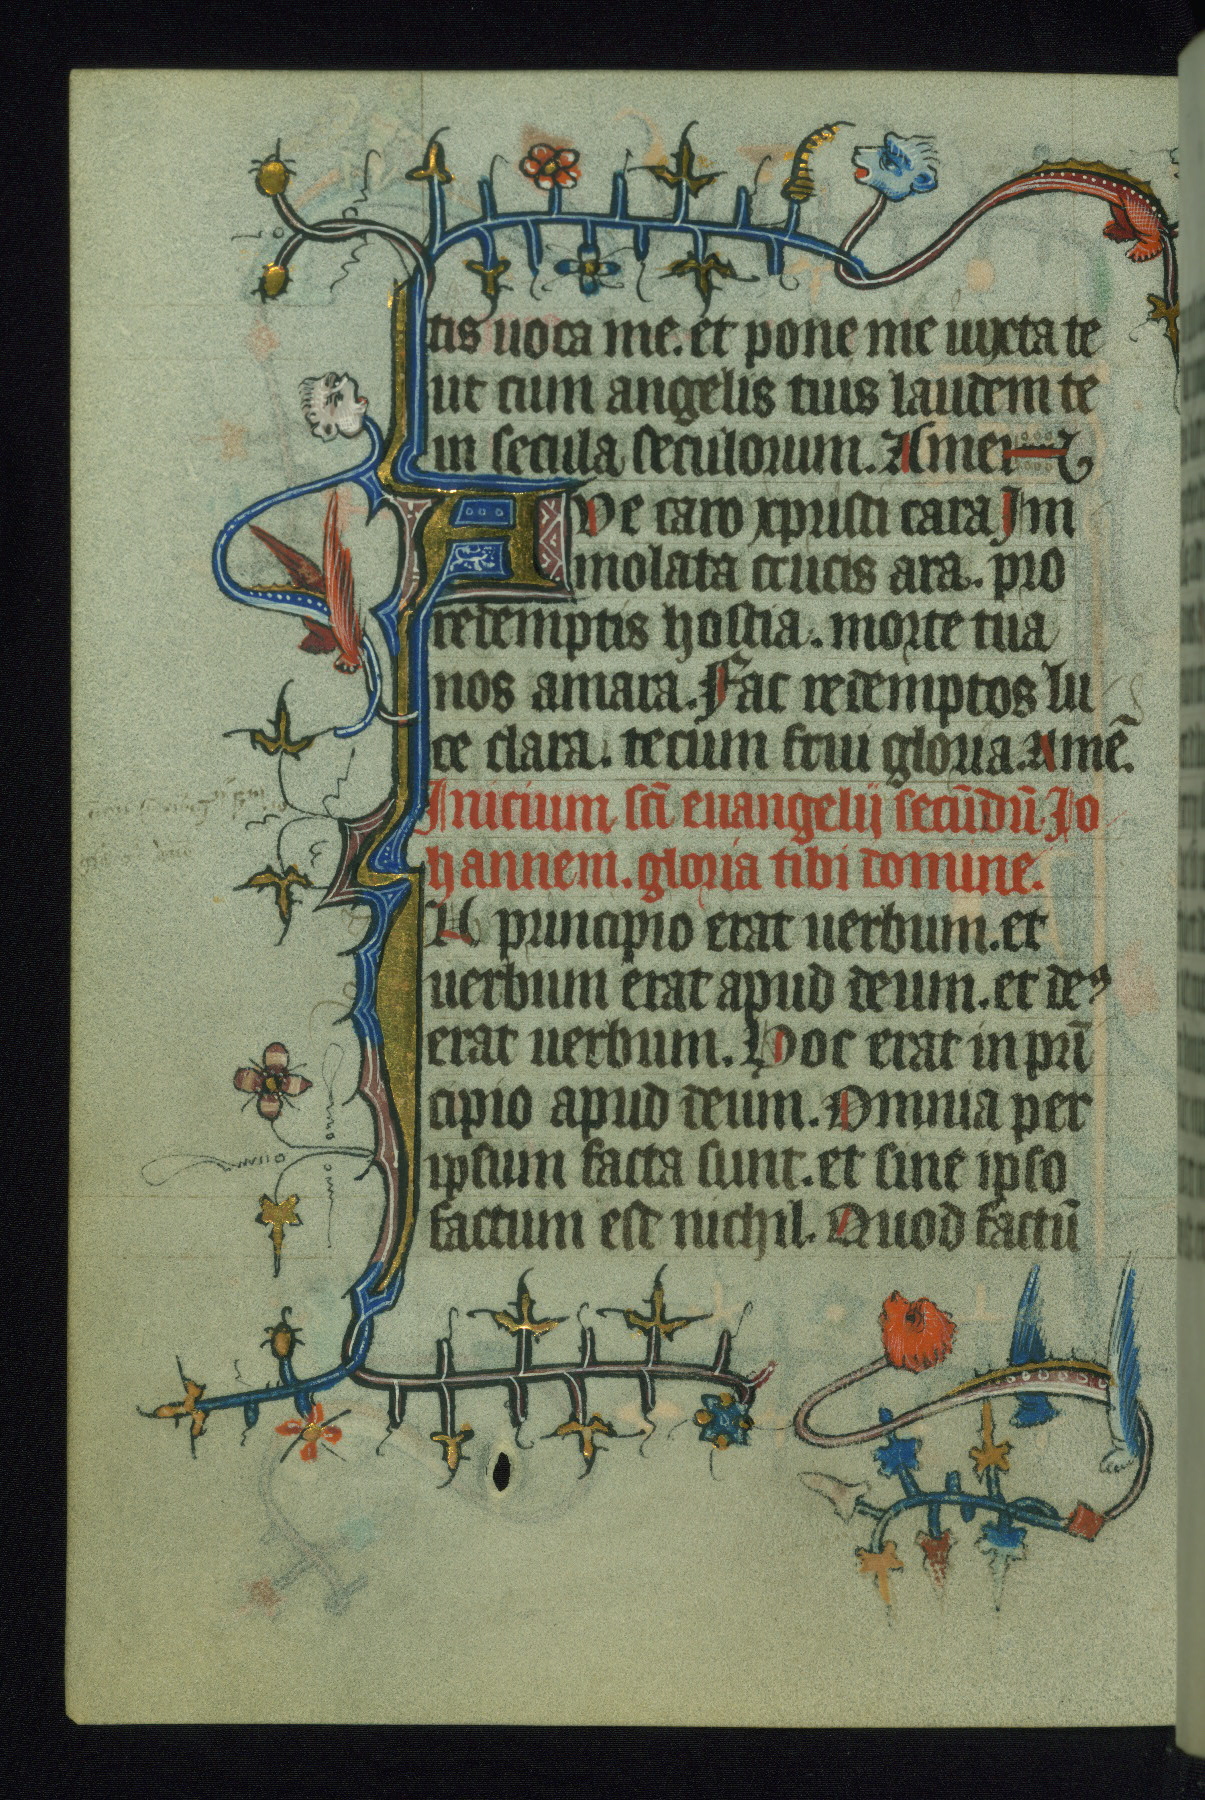 tis uoca me. et pone me iuxta te
ut cum angelis tuis laudem te
in secula seculorum. Amen
Ave caro xpristi cara Im
molata crucis ara. pro
redemptis hostia. morte tua
nos amara. Fac redemptos lu
ce clara. tecum frui gloria. amē.
Inicium sc̄i euangelij secūdū Jo
hannem. gloria tibi domine.
In principio erat uerbum. et
uerbum erat apud deum. et deꝰ
erat uerbum. Hoc erat in prī
cipio apud deum. Omnia per
ipsum facta sunt. et sine ipso
factum est nichil. Quod factū